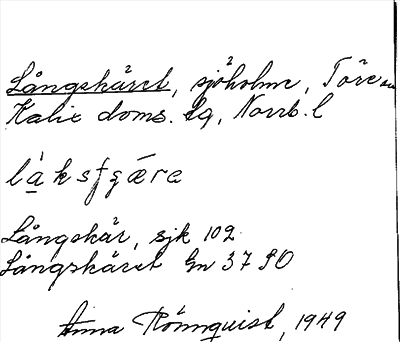 Långskäret, sjöholme, Töre sn
Kalix doms. lg, Norrb. l
Långskär, sjk 102
Långskäret Gn 37 SO
Anna Rönnquist, 1949